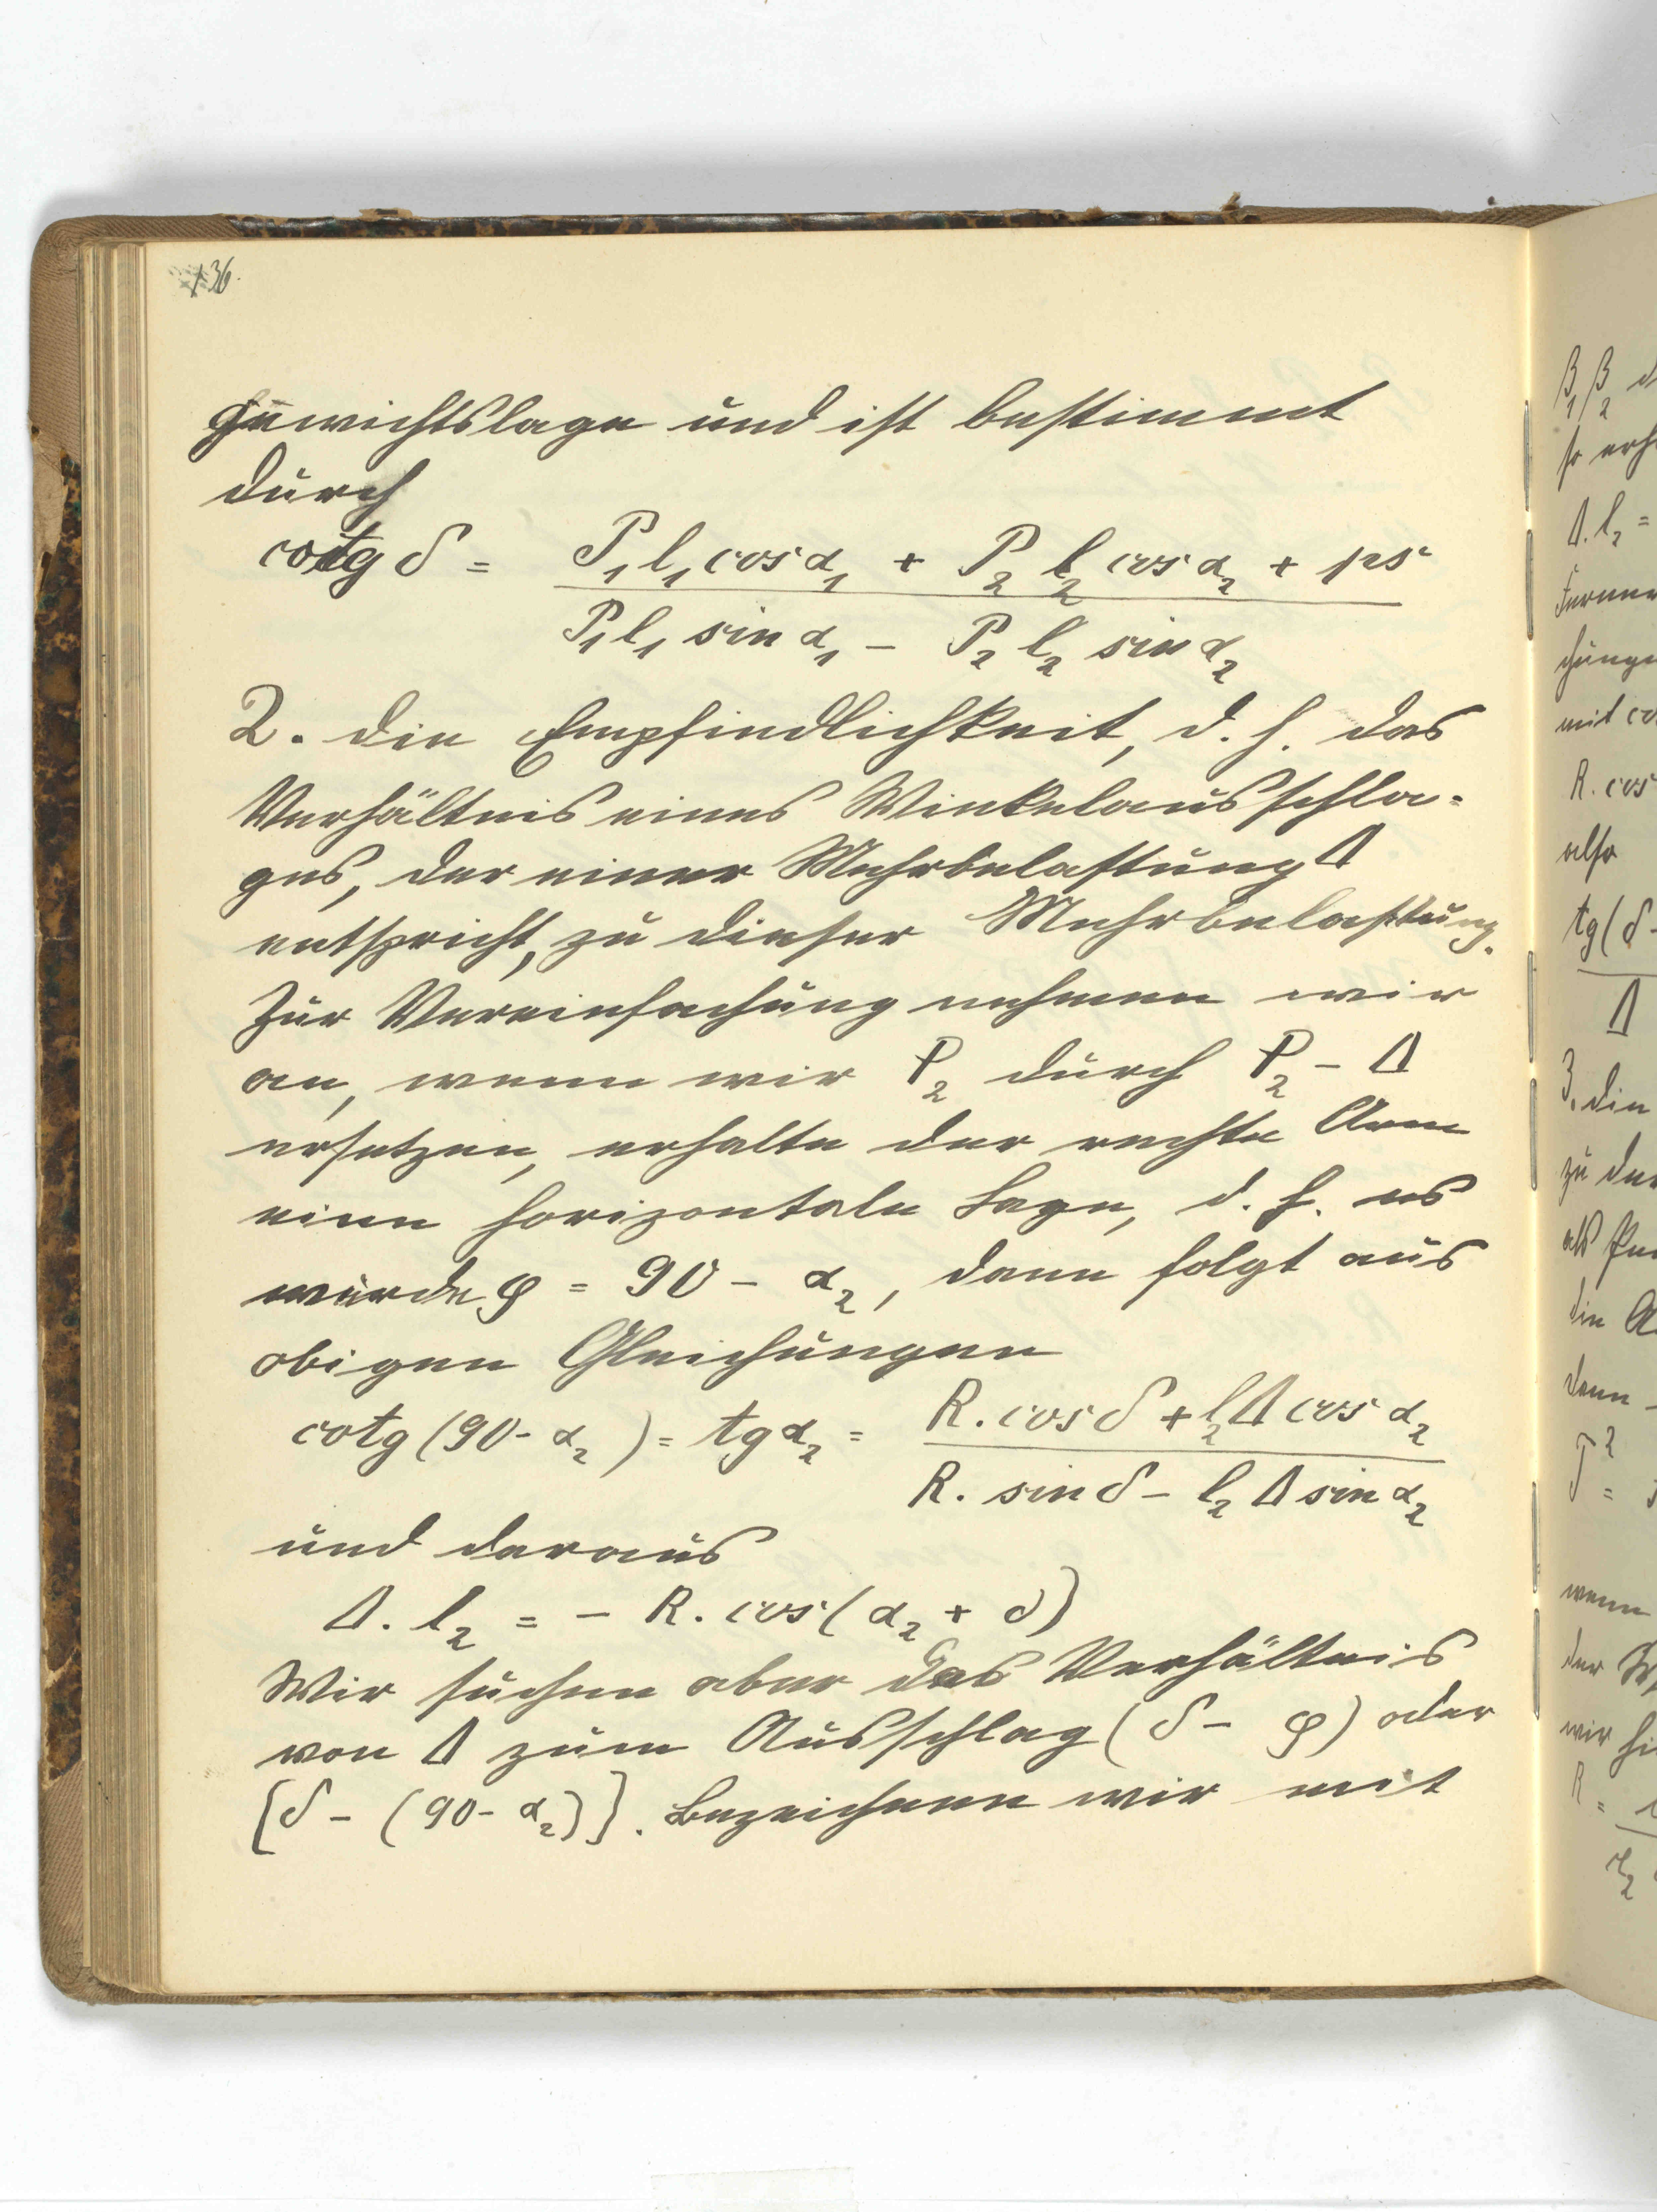 136.
gewichtslage und ist bestimmt
durch
cotg δ = (P₁l₁cosα₁ + P₂l₂cosα₂ + ps) / (P₁l₁ sinα₁ – P₂l₂ sinα₂)
2. die Empfindlichkeit, d. h. das
Verhältnis eines Winkelausschla-
ges, der einer Mehrbelastung Δ
entspricht, zu dieser Mehrbelastung.
Zur Vereinfachung nehmen wir
an, wenn wir P₂ durch P₂ – Δ
ersetzen, erhalte der rechte Arm
eine horizontale Lage, d. h. es
würde φ = 90 – α₂, dann folgt aus
obigen Gleichungen
cotg (90 - α₂) = tgα₂ = (R. cosδ + l₂Δ cosα₂) / (R. sinδ – l₂Δ sinα₂)
und daraus
Δ. l₂ = – R. cos(α₂ + δ)
Wir suchen aber das Verhältnis
von Δ zum Ausschlag (δ – φ) oder
[δ – (90 - α₂)]. Bezeichnen wir mit
β₁ β₂ d
so erh
Δ. l₂ =
Ferner
chunge
mit co
R. cos
also
tg(δ -
Δ
3. die
zu der
als
die A
denn
T² =
wenn
der
wir hi
R =